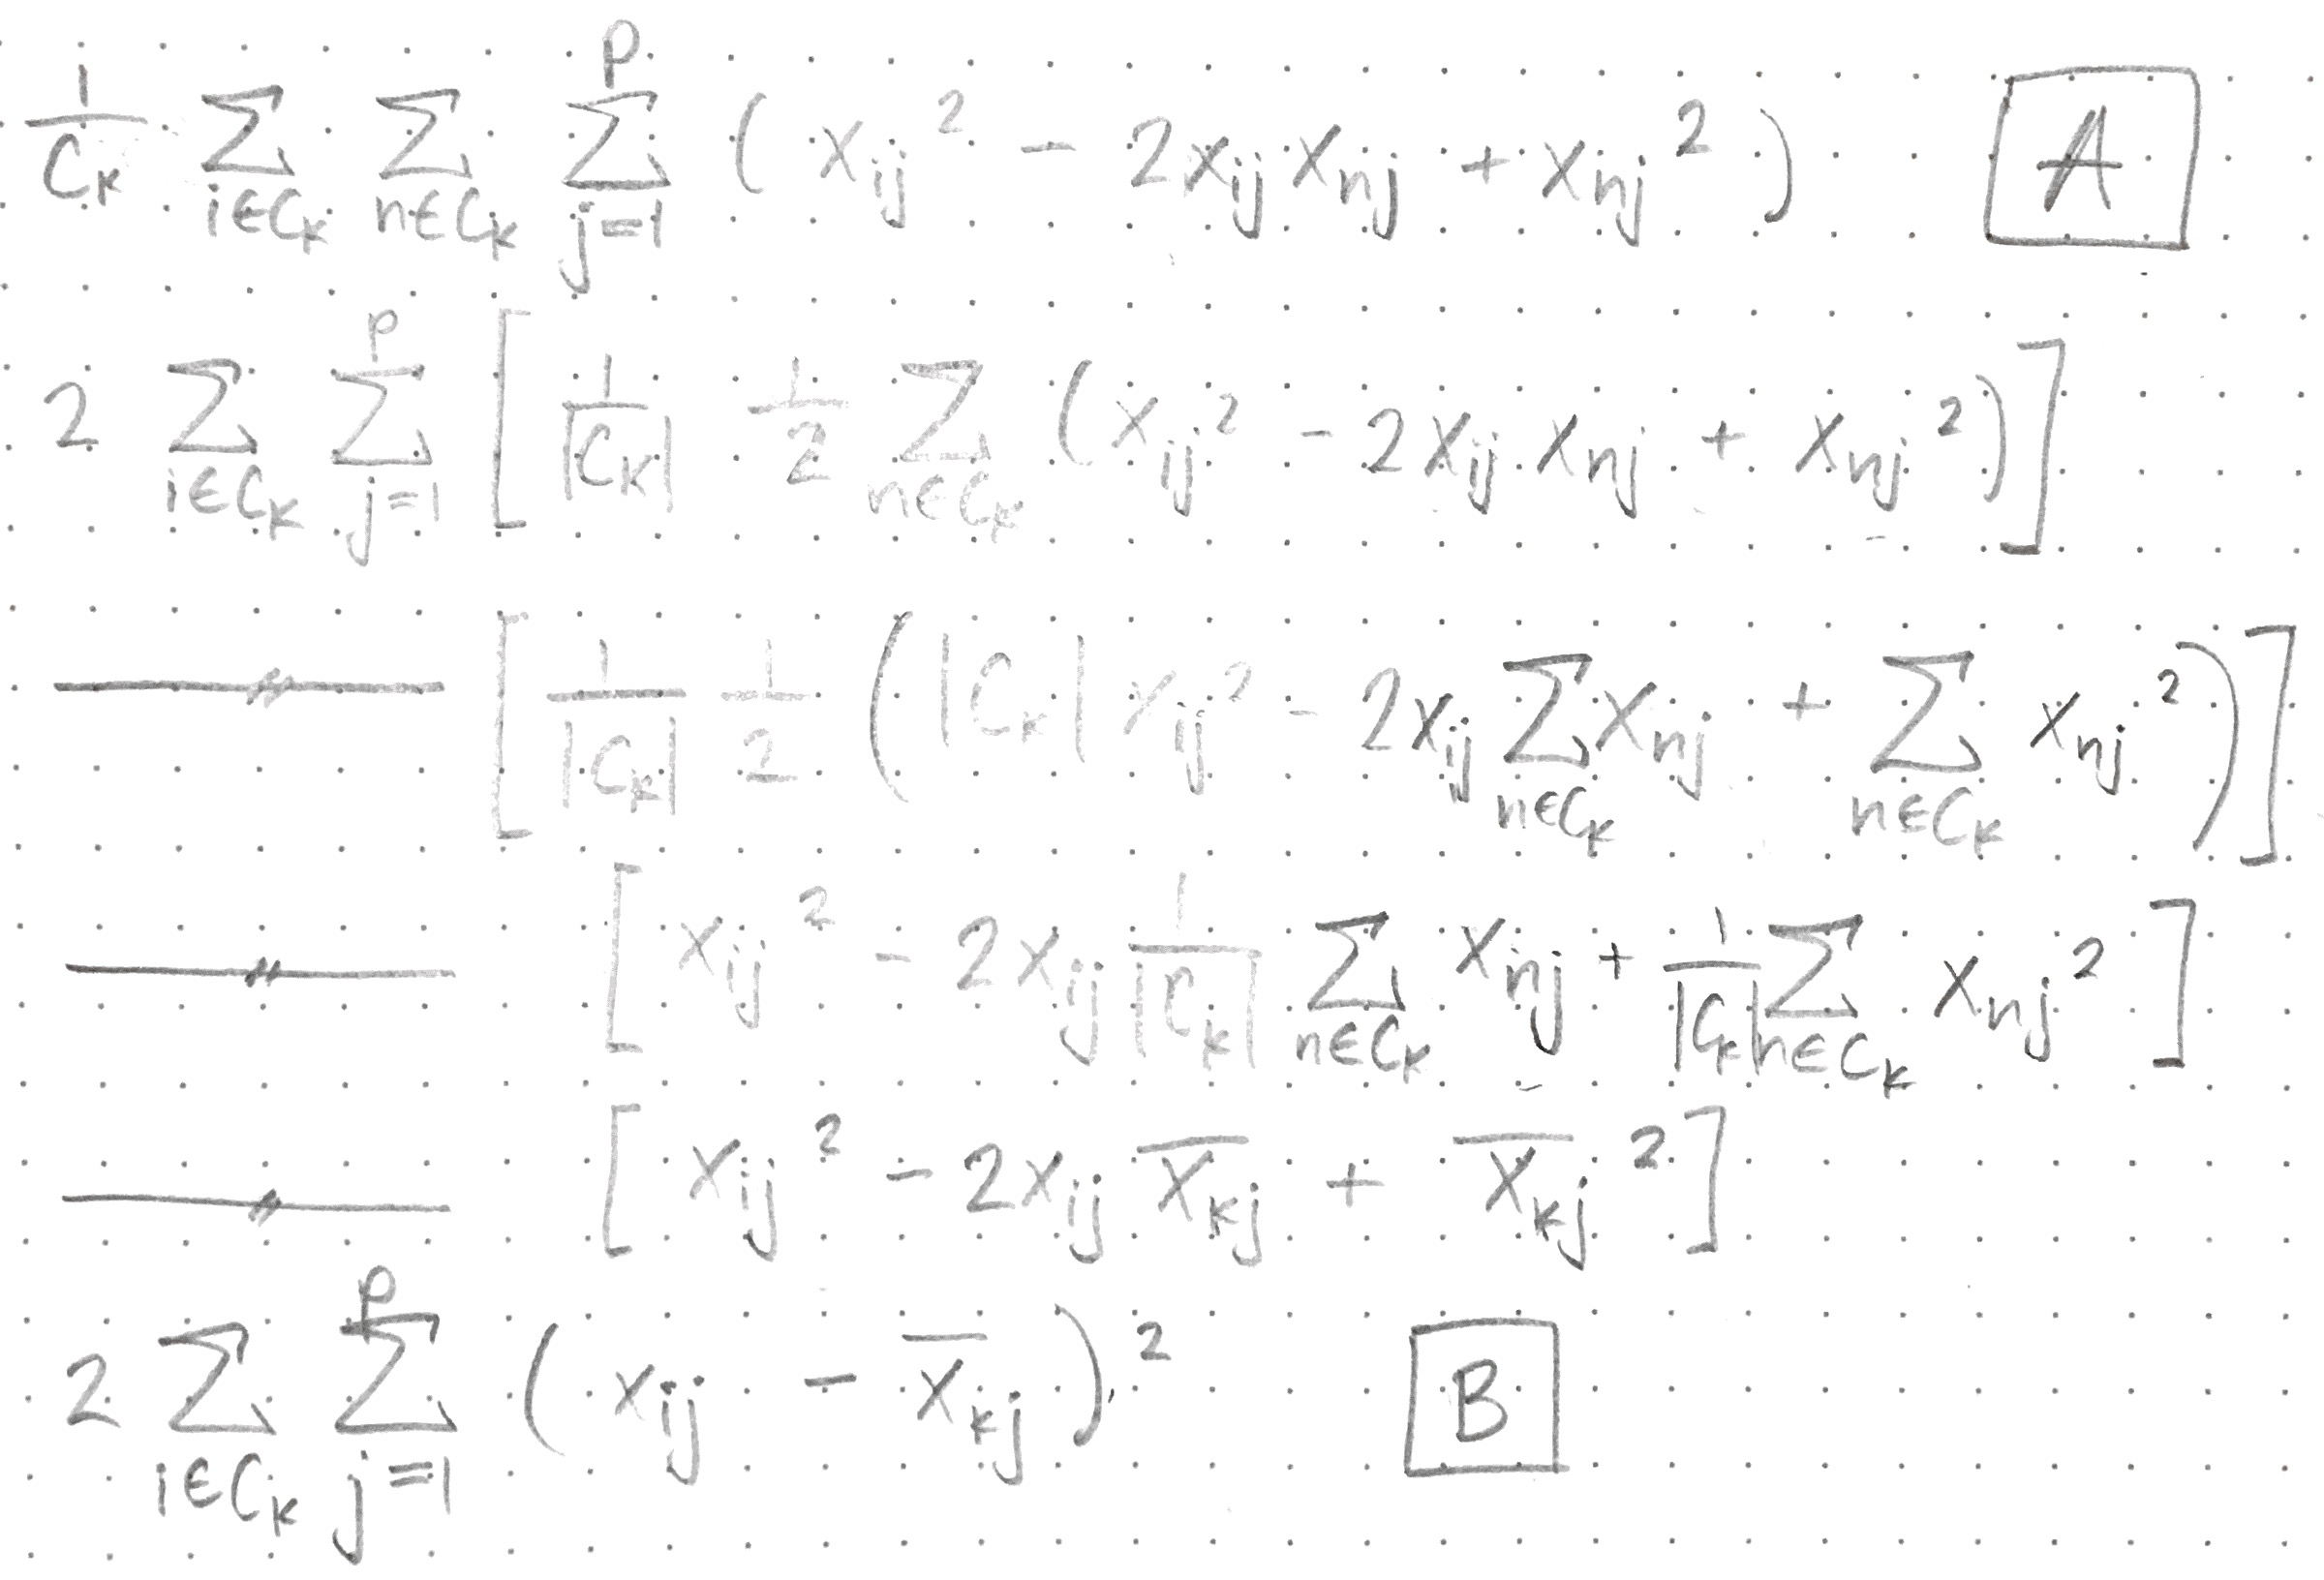 1/C_k Σ_{i∈C_k} Σ_{n∈C_k} Σ_{j=1}^{p} (x_{ij}² − 2x_{ij}x_{nj} + x_{nj}²) A
2 Σ_{i∈C_k} Σ_{j=1}^{p} [1/|C_k| 1/2 Σ_{n∈C_k} (x_{ij}² − 2x_{ij}x_{nj} + x_{nj}²)]
—〃— [1/|C_k| 1/2 (|C_k| x_{ij}² − 2x_{ij} Σ_{n∈C_k} x_{nj} + Σ_{n∈C_k} x_{nj}²)]
—〃— [x_{ij}² − 2x_{ij} 1/|C_k| Σ_{n∈C_k} x_{nj} + 1/|C_k| Σ_{n∈C_k} x_{nj}²]
—〃— [x_{ij}² − 2x_{ij} x̄_{kj} + x̄_{kj}²]
2 Σ_{i∈C_k} Σ_{j=1}^{p} (x_{ij} − x̄_{kj})² B